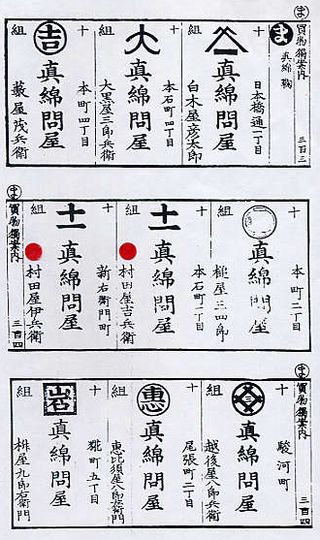 ま
買物獨案内
三百三
ま
真綿鞠
十組
日本橋通一丁目
真綿問屋
白木屋彦太郎
十組
大
本石町四丁目
真綿問屋
大黒屋三郎兵衛
十組
吉
本町四丁目
真綿問屋
薮屋茂兵衛
十組
本町二丁目
真綿問屋
槌屋三四郎
十組
十一
本石町二丁目
真綿問屋
村田屋吉兵衛
十組
十一
新右衛門町
真綿問屋
村田屋伊兵衛
ま
買物獨案内
三百四
ま
買物獨案内
三百四
十組
三
駿河町
真綿問屋
越後屋八郎兵衛
十組
惠
尾張町二丁目
真綿問屋
恵比須屋八郎左衛門
十組
岩
糀町五丁目
真綿問屋
枡屋九郎右衛門